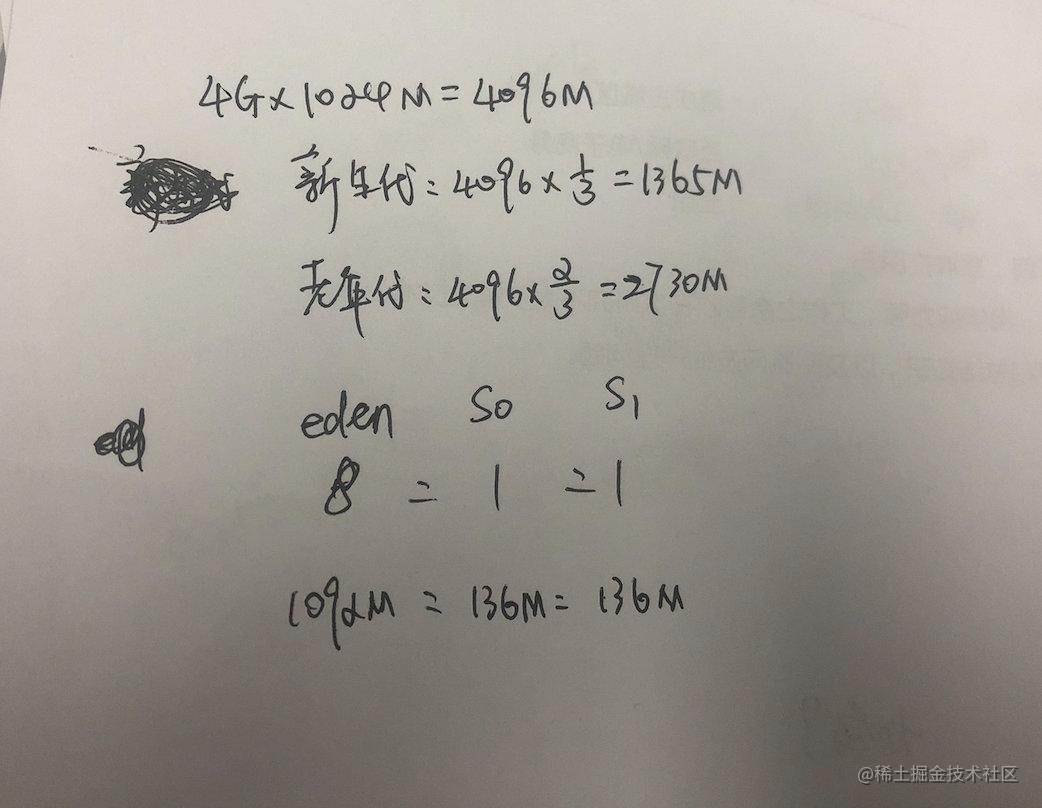 4G×1024M=4096M
新年代：4096×1/3=1365M
老年代：4096×2/3=2730M
eden S0 S1
8 = 1 = 1
1092M = 136M = 136M
@稀土掘金技术社区